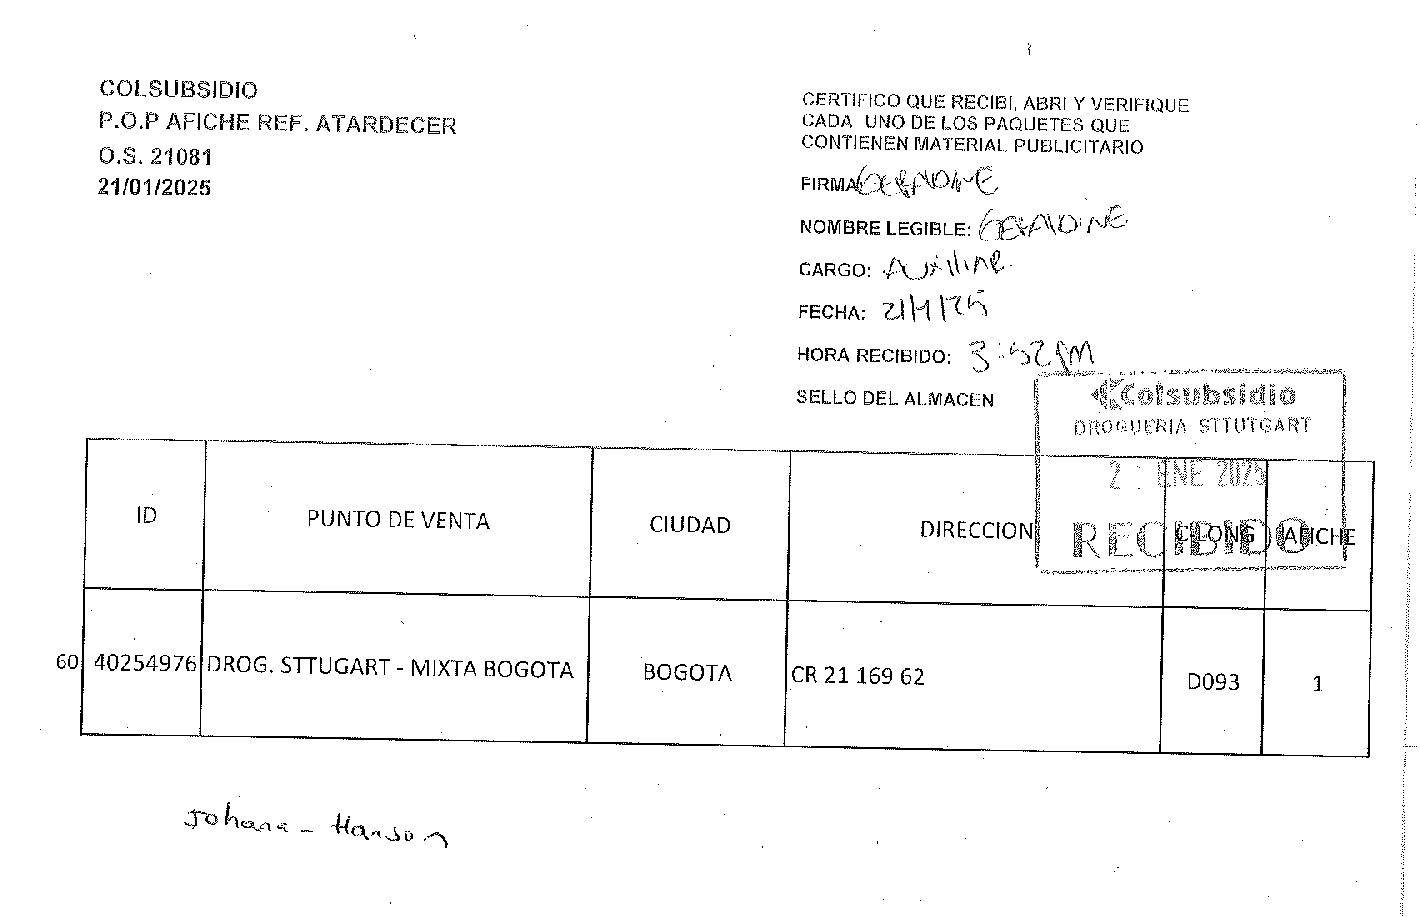 COLSUBSIDIO
P.O.P AFICHE REF. ATARDECER
O.S. 21081
21/01/2025
CERTIFICO QUE RECIBI, ABRI Y VERIFIQUE
CADA UNO DE LOS PAQUETES QUE
CONTIENEN MATERIAL PUBLICITARIO
FIRMA
NOMBRE LEGIBLE:
CARGO:
FECHA: 21/1/25
HORA RECIBIDO: 3:52 PM
SELLO DEL ALMACEN
Colsubsidio
DROGUERIA STTUTGART
2 ENE 2025
RECIBIDO
ID PUNTO DE VENTA CIUDAD DIRECCION AFICHE
60 40254976 DROG. STTUGART - MIXTA BOGOTA BOGOTA CR 21 169 62 D093 1
Johana - Hanson